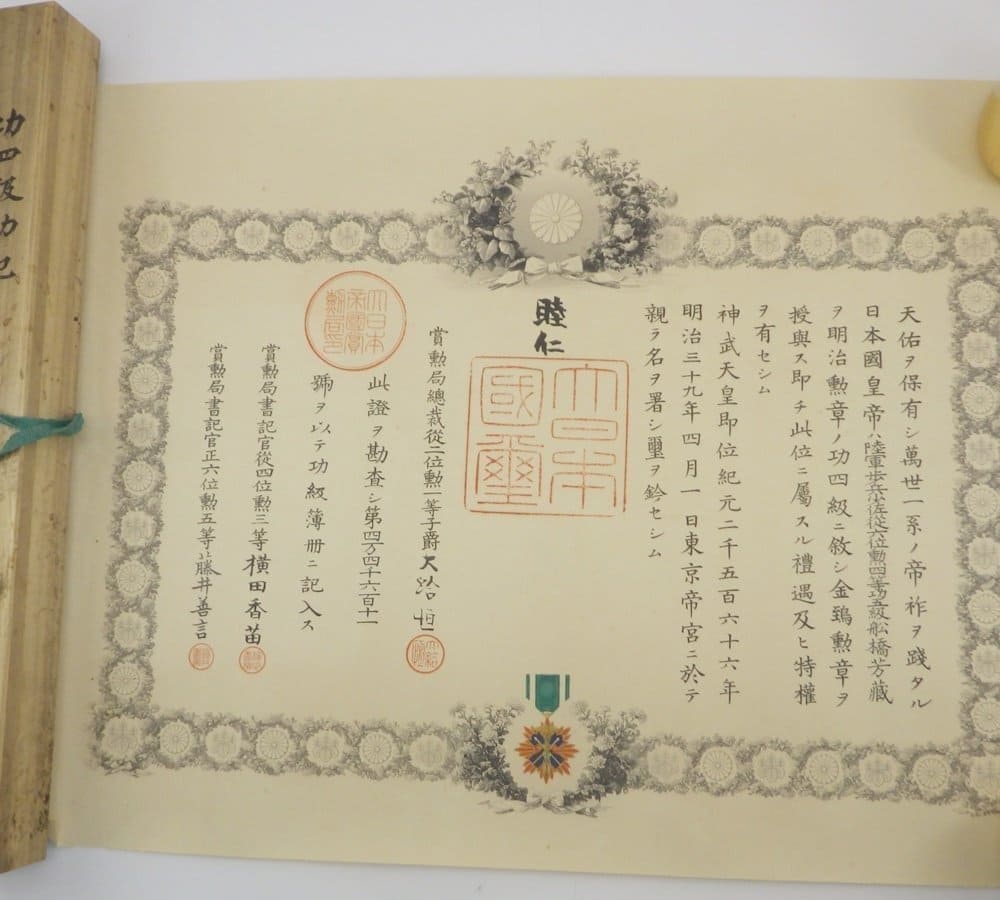 天佑ヲ保有シ萬世一系ノ帝祚ヲ踐タル
日本國皇帝ハ陸軍歩兵佐從六位勲四等功五級舩橋芳藏
ヲ明治勲章ノ功四級ニ敘シ金鵄勲章ヲ
授與ス即チ此位ニ屬スル禮遇及ヒ特權
ヲ有セシム
神武天皇即位紀元二千五百六十六年
明治三十九年四月一日東京帝宮ニ於テ
親ラ名ヲ署シ璽ヲ鈐セシム
睦仁
大日本國璽
賞勲局總裁從二位勲一等子爵大給恒
此證ヲ勘査シ第四万四千六百十一
號ヲ以テ功級簿册ニ記入ス
大日本帝國賞勲局印
賞勲局書記官從四位勲三等横田香苗
賞勲局書記官正六位勲五等藤井善言
功四級功記